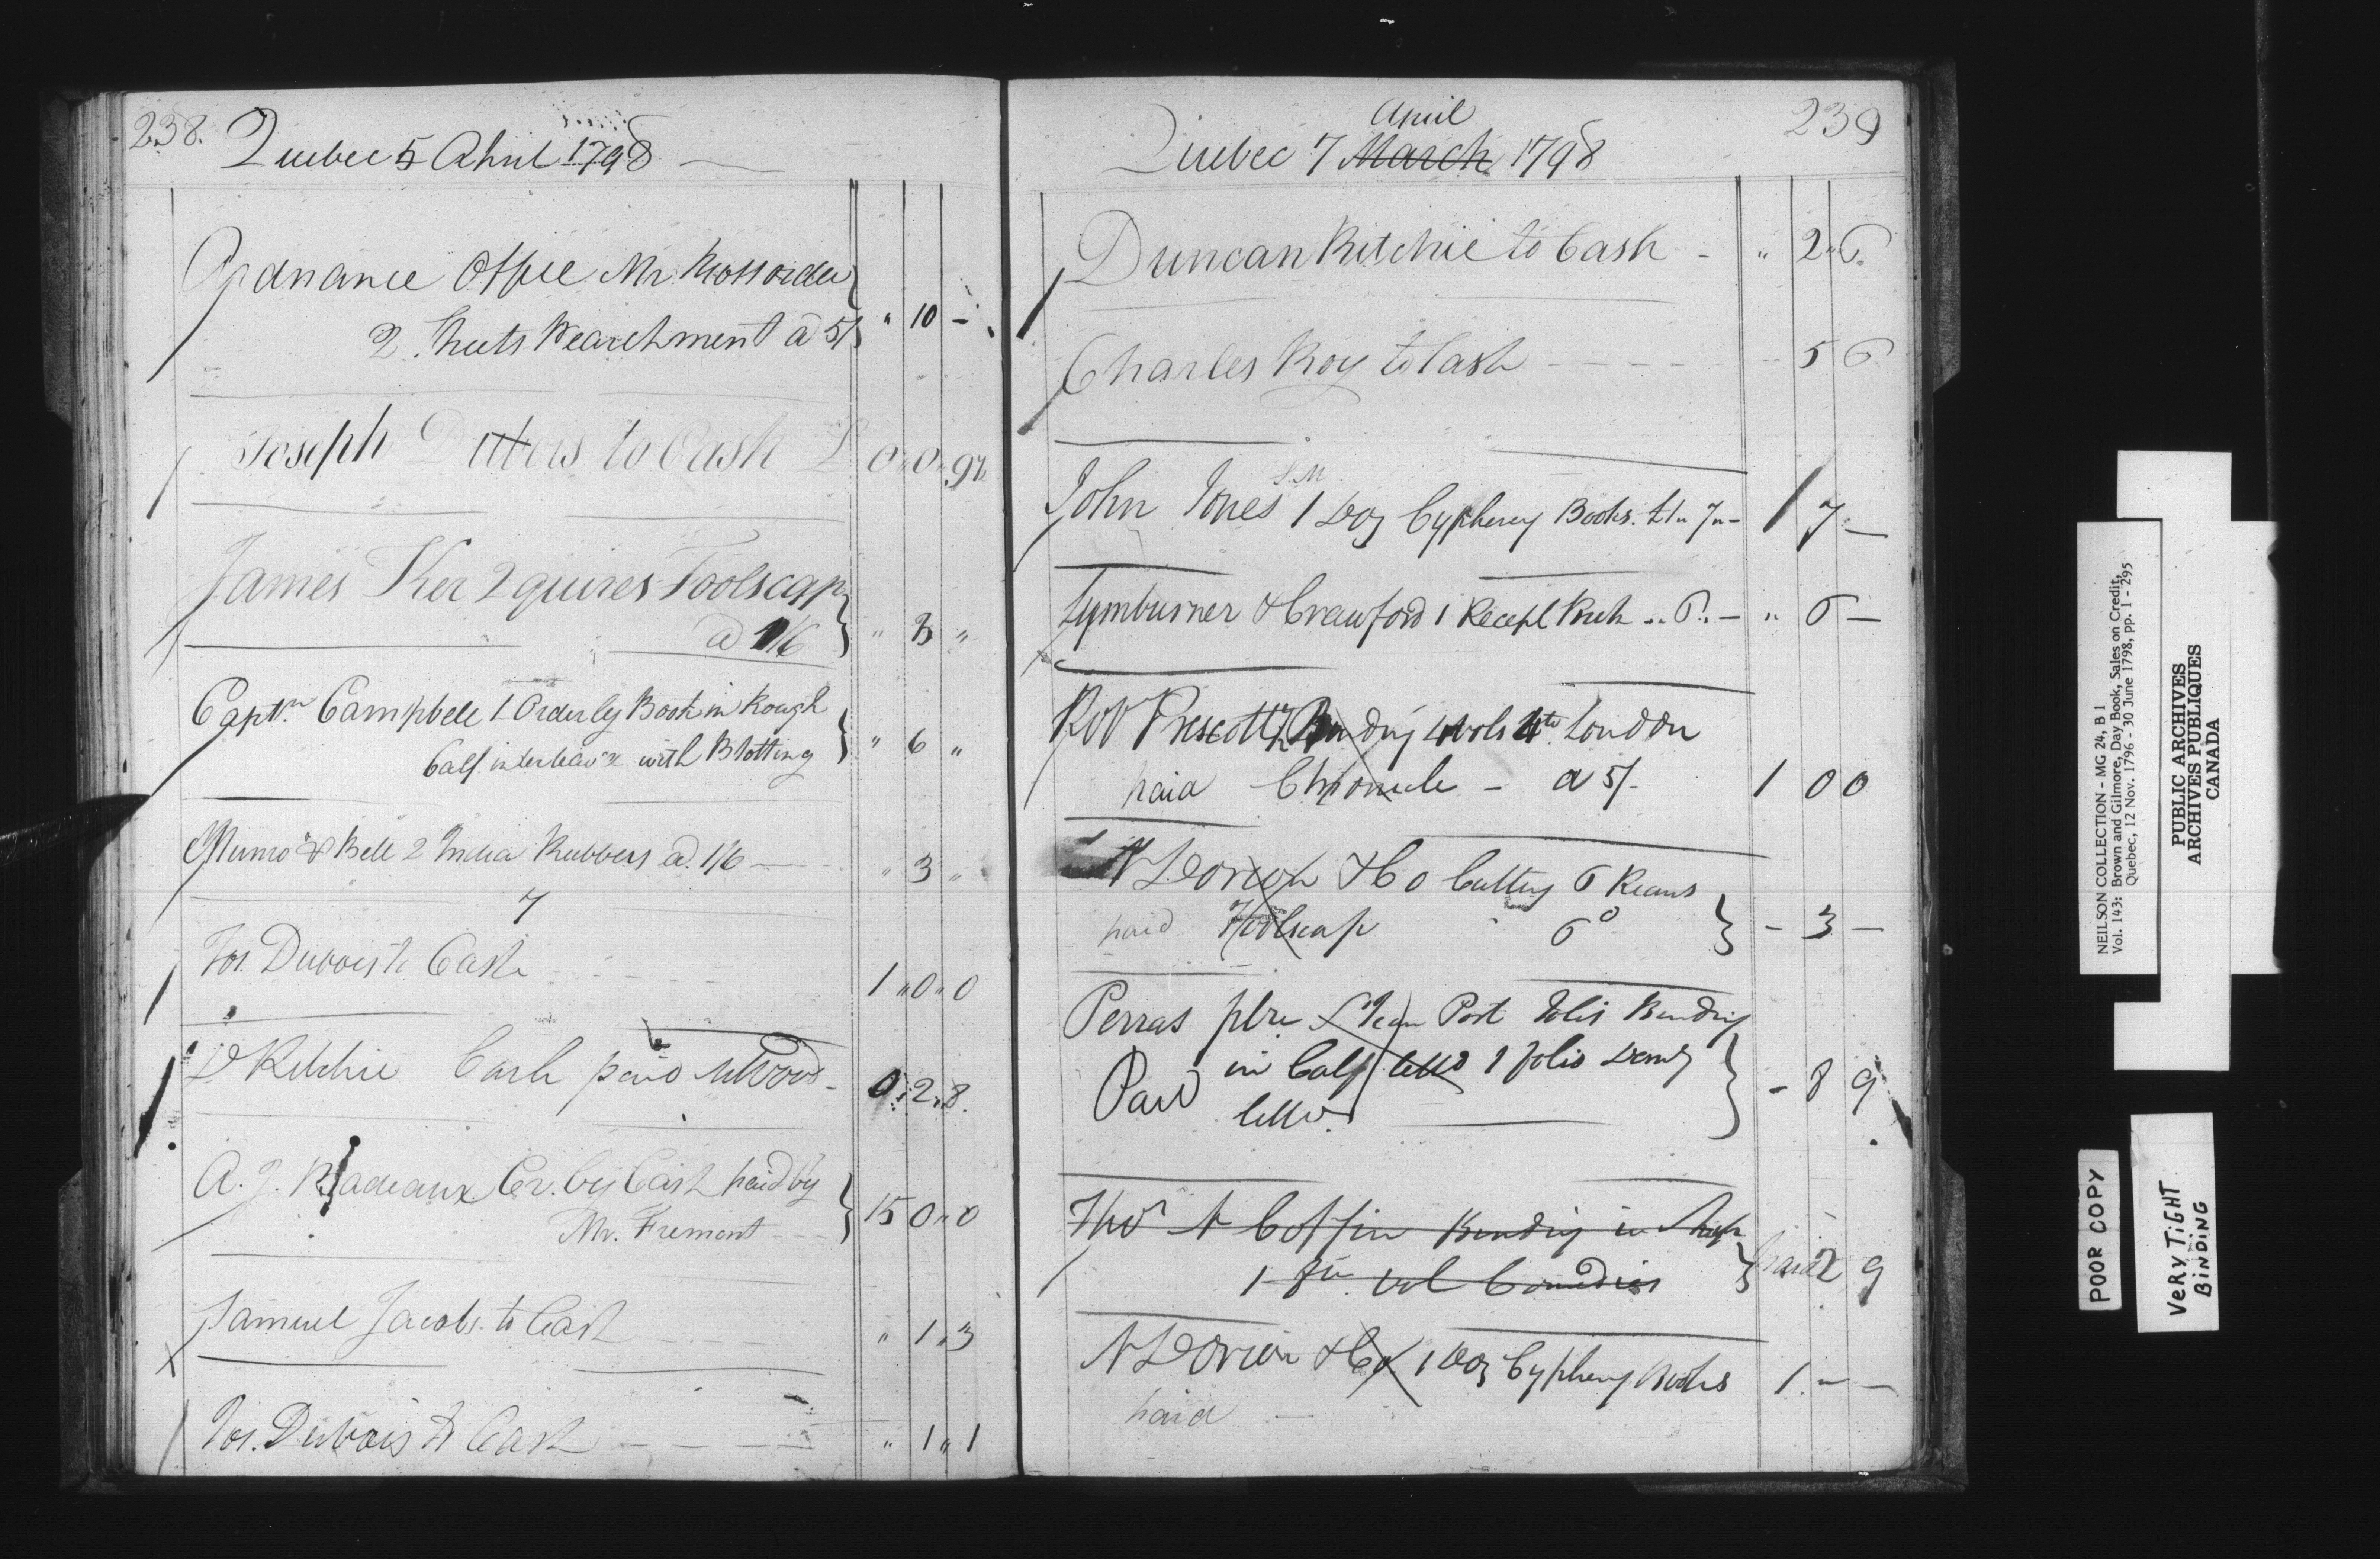 238.
Quebec 5 April 1798
Ordnance Office Mr Ross order
2 Sheets Pearchment a 5/ " 10 -
Joseph Dubois to Cash £ 0 " 0 " 9½
James Ker 2 quires Foolscap
a 1/6 " 3 "
Captn. Campbell 1 Orderly Book in Rough
Calf interleav'd with Blotting " 6 "
Munro & Bell 2 India Rubbers a. 1/6 " 3 "
7
Jos. Dubois to Cash 1 " 0 " 0
D Ritchie Cash paid 0 " 2 " 8.
A. J. Badeaux Cr. by Cash paid by
Mr. Fremont 15 0 " 0
Samuel Jacobs to Cash " 1 " 3
Jos. Dubois to Cash " 1 " 1
239
April
Quebec 7 March 1798
Duncan Ritchie to Cash - " 2 " 6.
Charles Roy to Cash 5 6
S.M
John Jones 1 Doz Cyphering Books. £1 " 7 " - 1 7 -
Lymburner & Crawford 1 Receipt Book .. 6 .. - " 6 -
Prescott Binding 4 vols 4to London
paid Chronicle - a 5/- 1 0 0
N Dorion & Co Cutting 6 Reams
paid Foolscap 6d - 3 -
Perras Post Folio Binding
in Calf letter'd 1 folio Demy
Paid letter'd - 8 9
Thos A Coffin Binding in
1 8vo vol Comedies paid 2 9
N Dorion & Co 1 Doz Cyphering Books 1. - -
paid -
NEILSON COLLECTION - MG 24, B 1
Vol. 143: Brown and Gilmore, Day Book, Sales on Credit,
Quebec, 12 Nov. 1796 - 30 June 1798, pp. 1 - 295
PUBLIC ARCHIVES
ARCHIVES PUBLIQUES
CANADA
POOR COPY
VERY TIGHT
BINDING